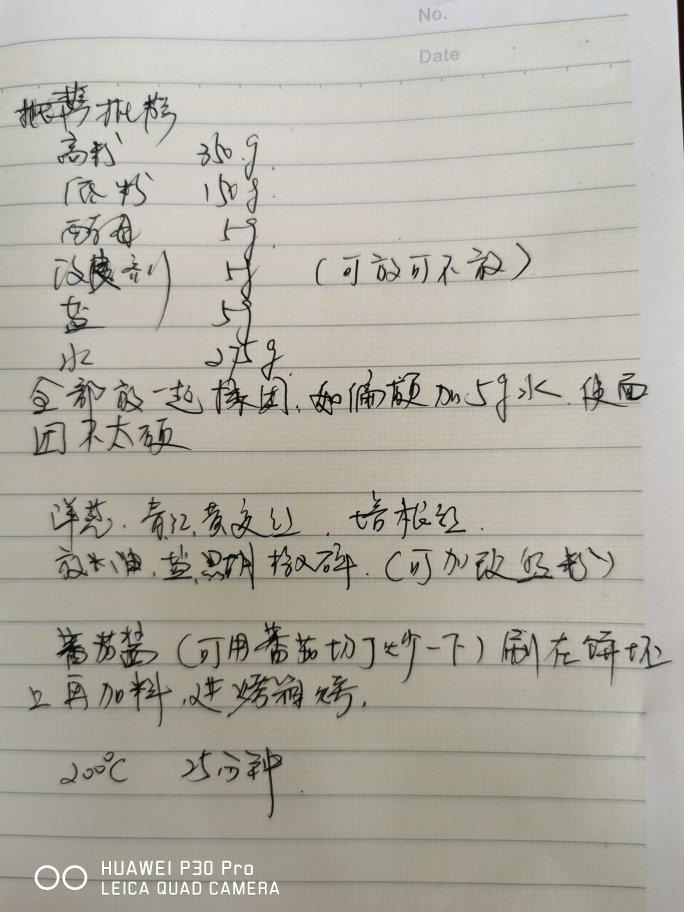 No.
Date
批萨
高粉 350g
低粉 150g
酵母 5g
改良剂 5g (可放可不放)
盐 5g
水 275g
全部放一起揉团,如偏硬加5g水,使面
团不太硬
洋葱、青红黄 培根
放 油、盐、黑胡椒碎.(可加 粉)
蕃茄酱(可用蕃茄切丁炒一下)刷在饼坯
上再加料,进烤箱烤,
200℃ 25分钟
HUAWEI P30 Pro
LEICA QUAD CAMERA